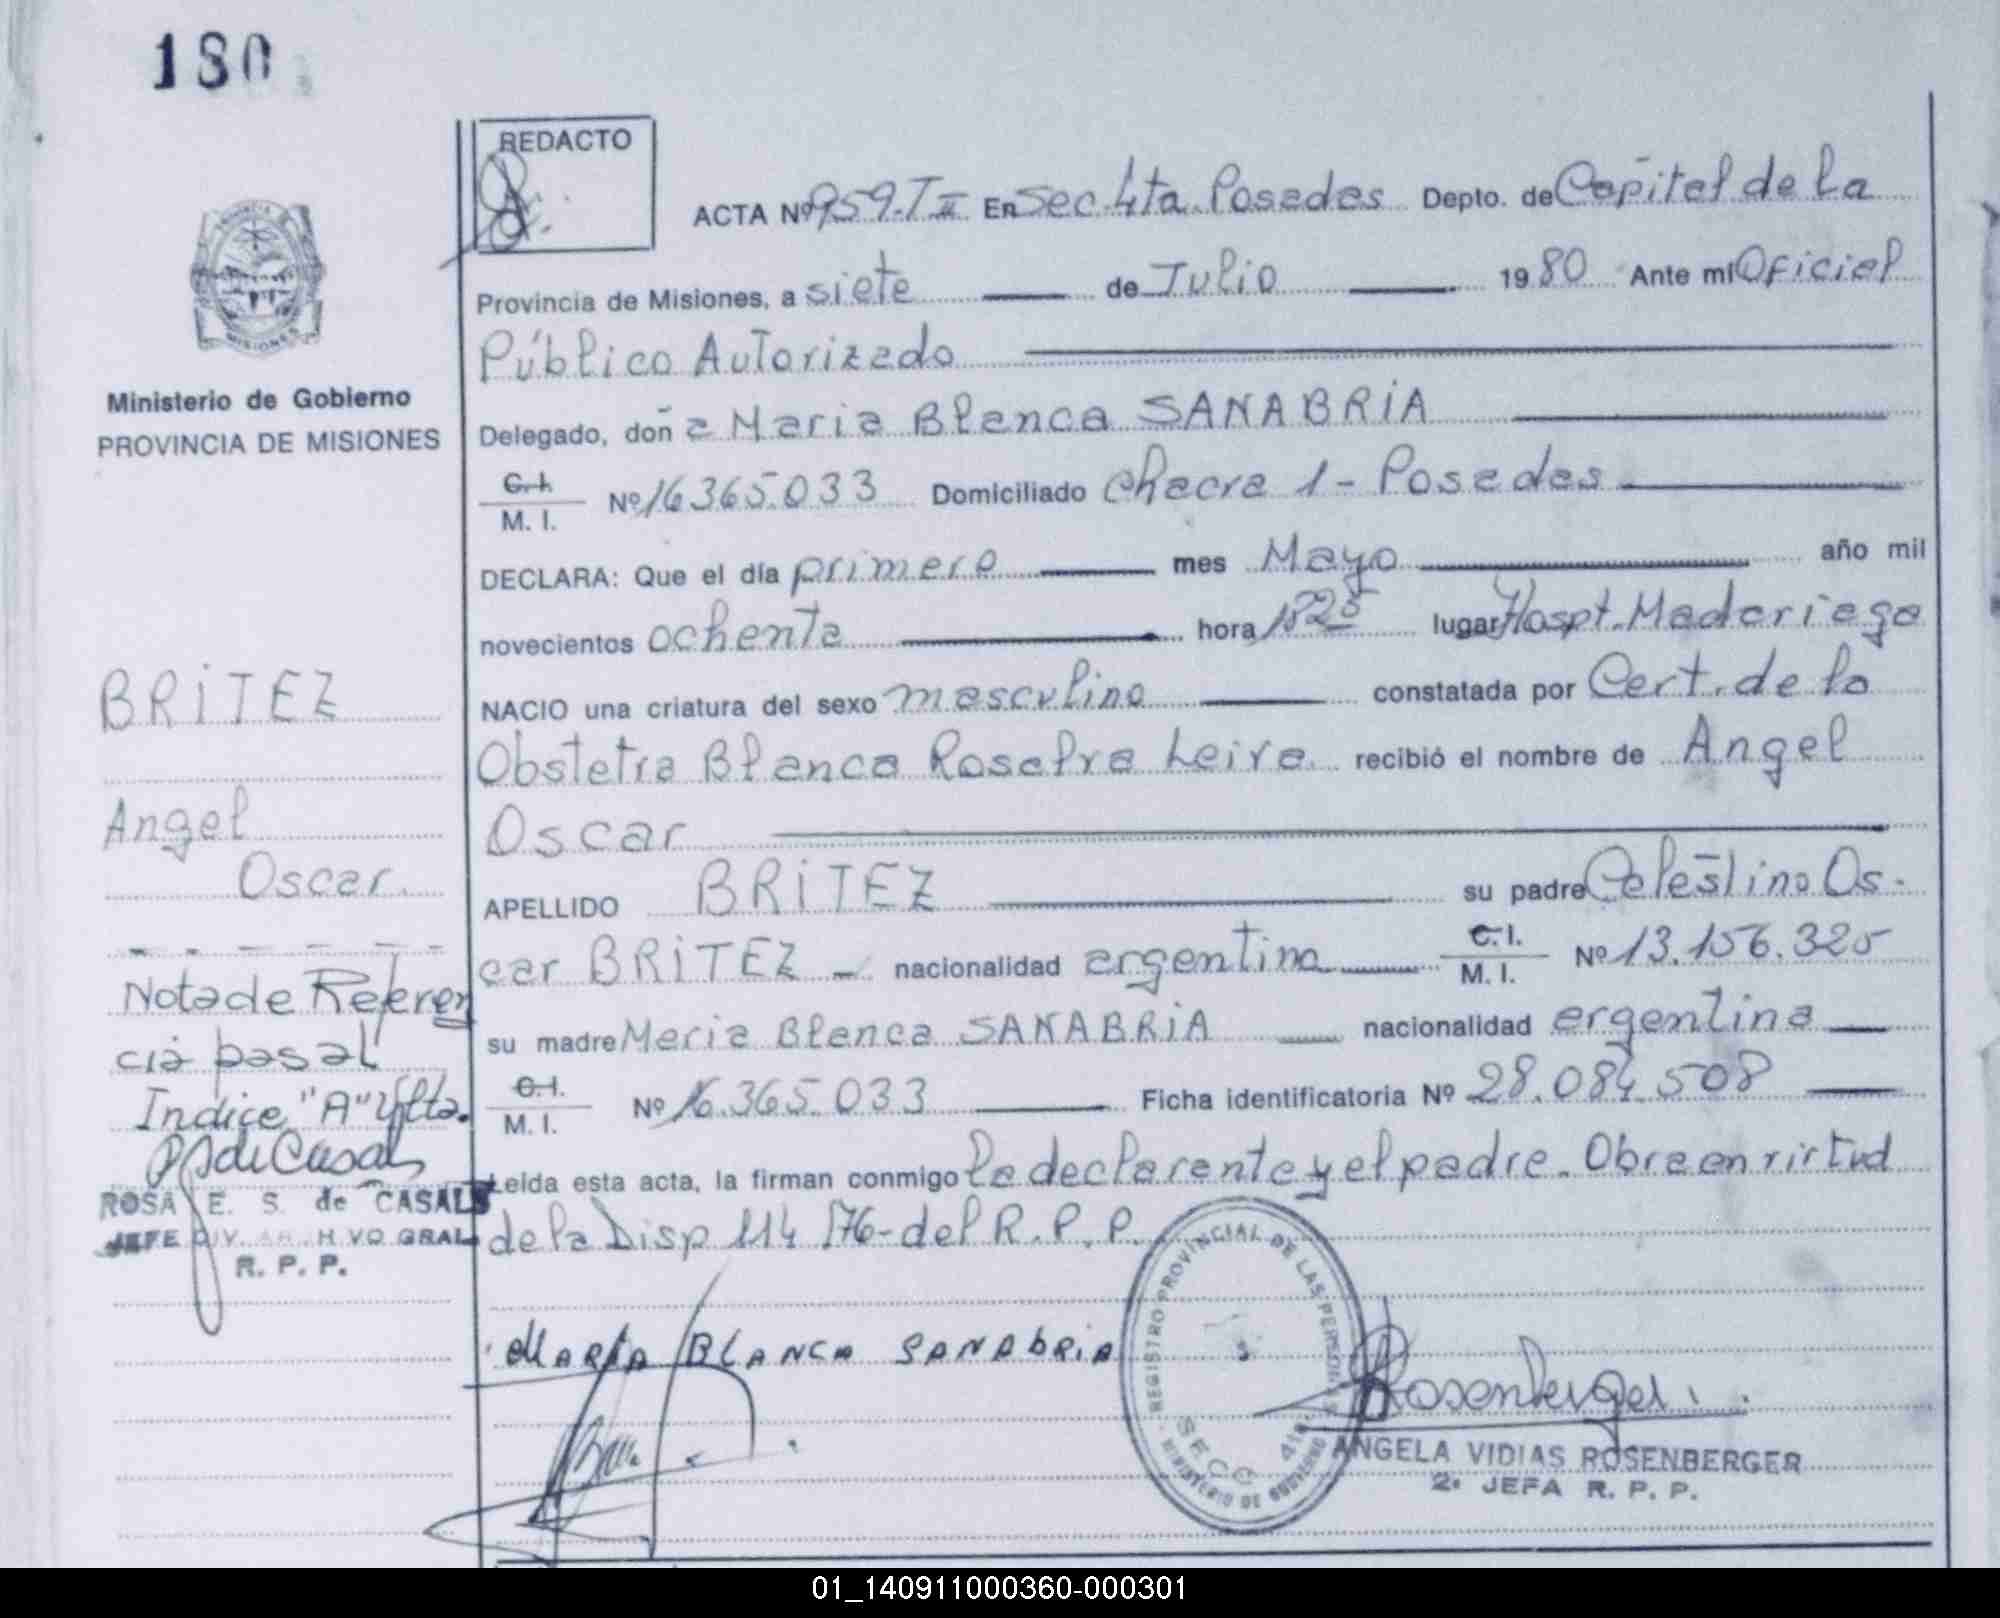 180
REDACTO
ACTA Nº 959.T II En Sec. 4ta. Posadas Depto. de Capital de la
Provincia de Misiones, a siete de Julio 1980 Ante mí Oficial
Público Autorizado
Delegado, doña Maria Blanca SANABRIA
C. I. M. I. Nº 16.365.033 Domiciliado Chacra 1 - Posadas
DECLARA: Que el día primero mes Mayo año mil
novecientos ochenta hora 1825 lugar Hospt. Madariaga
NACIO una criatura del sexo masculino constatada por Cert. de la
Obstetra Blanca Rosalva Leiva recibió el nombre de Angel
Oscar
APELLIDO BRITEZ su padre Celestino Os-
car BRITEZ nacionalidad argentina C. I. M. I. Nº 13.156.325
su madre Maria Blanca SANABRIA nacionalidad argentina
C. I. M. I. Nº 16.365.033 Ficha identificatoria Nº 28.084.508
Leída esta acta, la firman conmigo la declarante y el padre. Obra en virtud
de la Disp 114/76-del R. P. P.
MARIA BLANCA SANAbRiA
REGISTRO PROVINCIAL DE LAS PERSONAS
SECC 4ta.
MINISTERIO DE GOBIERNO
Rosenberger
ANGELA VIDIAS ROSENBERGER
2ª JEFA R. P. P.
MISIONES
Ministerio de Gobierno
PROVINCIA DE MISIONES
BRITEZ
Angel
Oscar
Nota de Referen
cia pasa al
Indice "A" Ylta.
ROSA E. S. de CASALS
JEFE DIV. ARCHIVO GRAL
R. P. P.
01_140911000360-000301